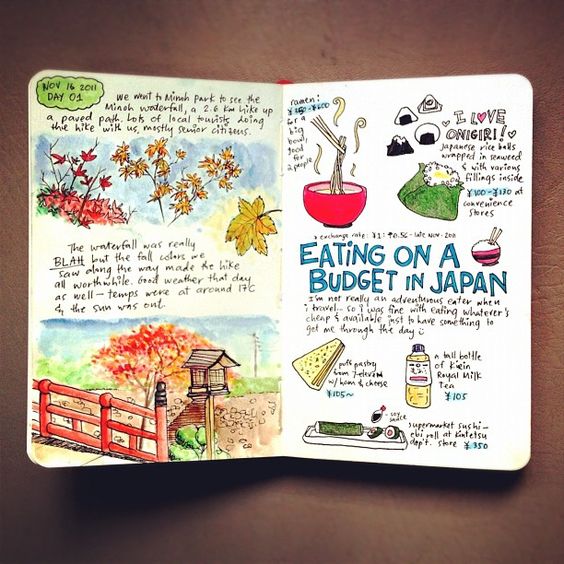 NOV 16 2011
DAY 01
We went to Minoh Park to see the
Minoh waterfall, a 2.6 km hike up
a paved path. Lots of local tourists doing
the hike with us, mostly senior citizens.
The waterfall was really
BLAH but the fall colors we
saw along the way made the hike
all worthwhile. Good weather that day
as well — temps were at around 17°C
& the sun was out.
ramen:
¥350-¥600
for a
big
bowl,
good
for
2 people
I LOVE
ONIGIRI!
Japanese rice balls
wrapped in seaweed
& with various
fillings inside
¥100-¥130 at
convenience
stores
> exchange rate: ¥1: ₱0.56 - late Nov. 2011
EATING ON A
BUDGET IN JAPAN
I'm not really an adventurous eater when
I travel... so I was fine with eating whatever's
cheap & available just to have something to
get me through the day
puff pastry
from 7-eleven
w/ ham & cheese
¥105~
a tall bottle
of Kirin
Royal Milk
Tea
¥105
soy
sauce
supermarket sushi -
ebi roll at Kintetsu
dep't. store ¥350